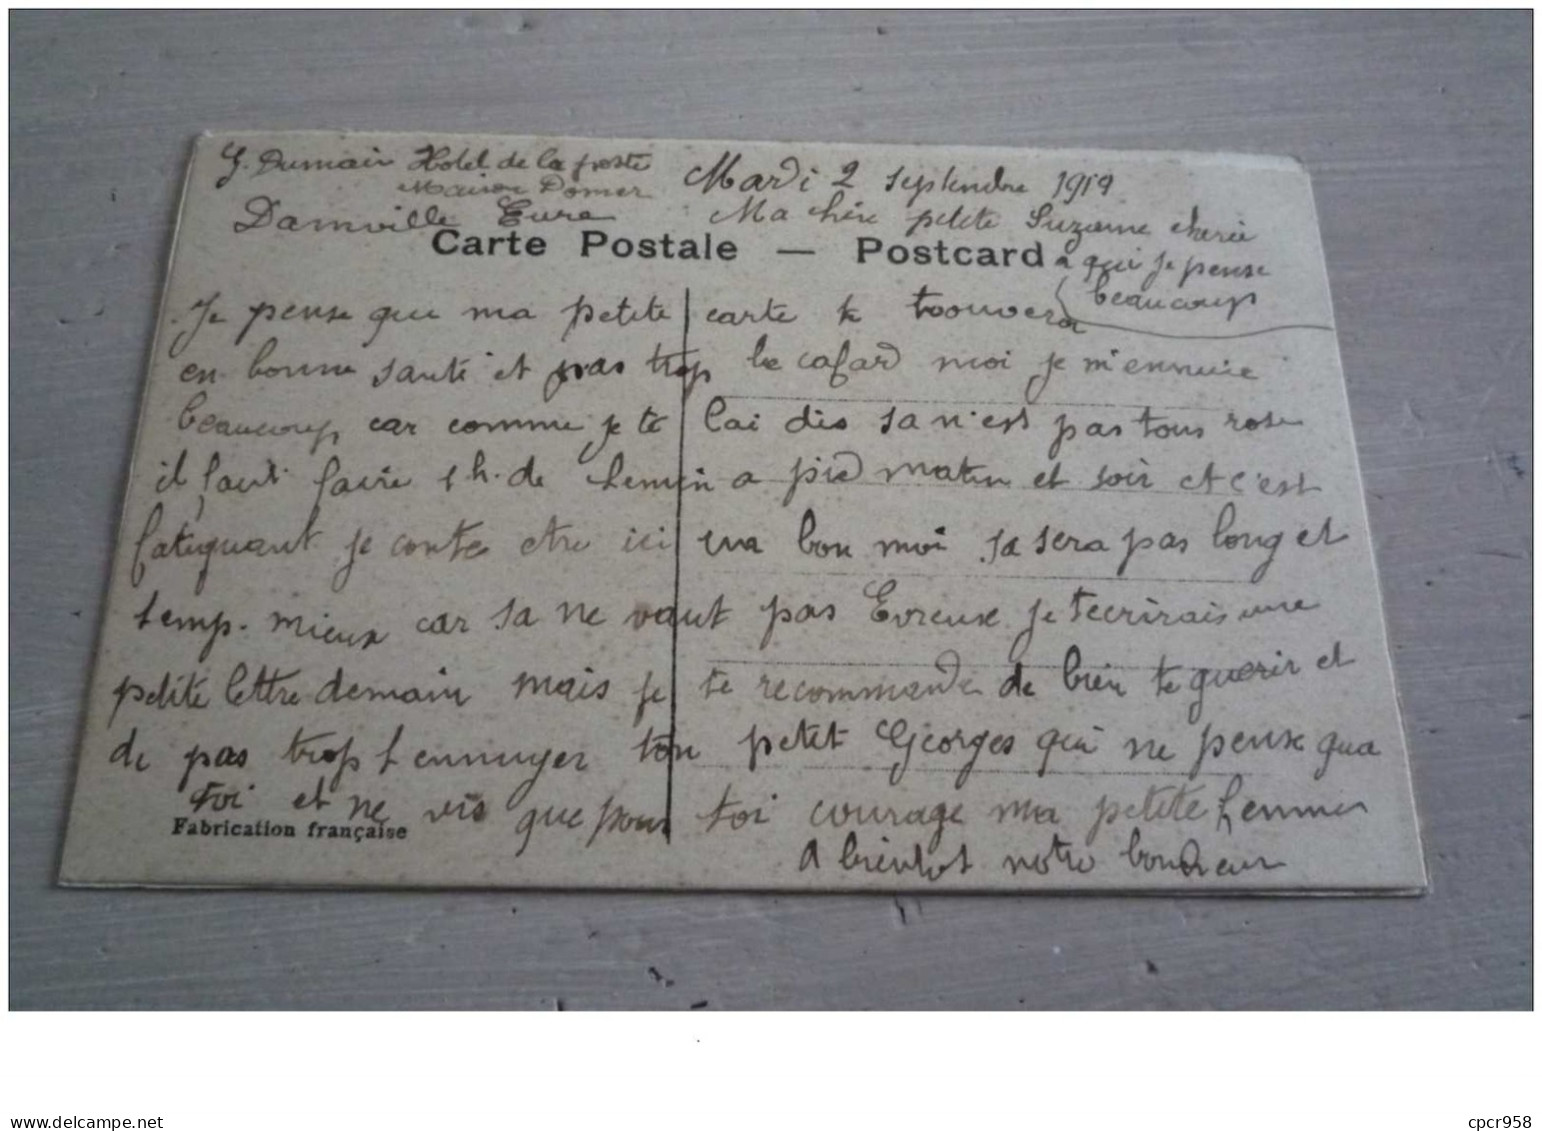 G. Dumain Hotel de la poste
Maison Domer
Damville Eure
Mardi 2 septendre 1919
Ma chére petite Suzanne cherie
a qui je pense
beaucoup
Carte Postale — Postcard
Je pense que ma petite carte te trouvera
en bonne santé et pas trop le cafard moi je m'ennuie
beaucoup car comme je te l'ai dis sa n'est pas tous rose
il faut faire 1h. de chemin a pied matin et soir et c'est
fatiguant je conte etre ici un bon moi sa sera pas long et
temp. mieux car sa ne vaut pas Evreux je t'ecrirais une
petite lettre demain mais je te recommande de bien te guerir et
de pas trop t'ennuyer ton petit Georges qui ne pense qua
toi et ne vis que pour toi courage ma petite femme
a bientot notre bonheur
Fabrication française
delcampe.net
cpcr958